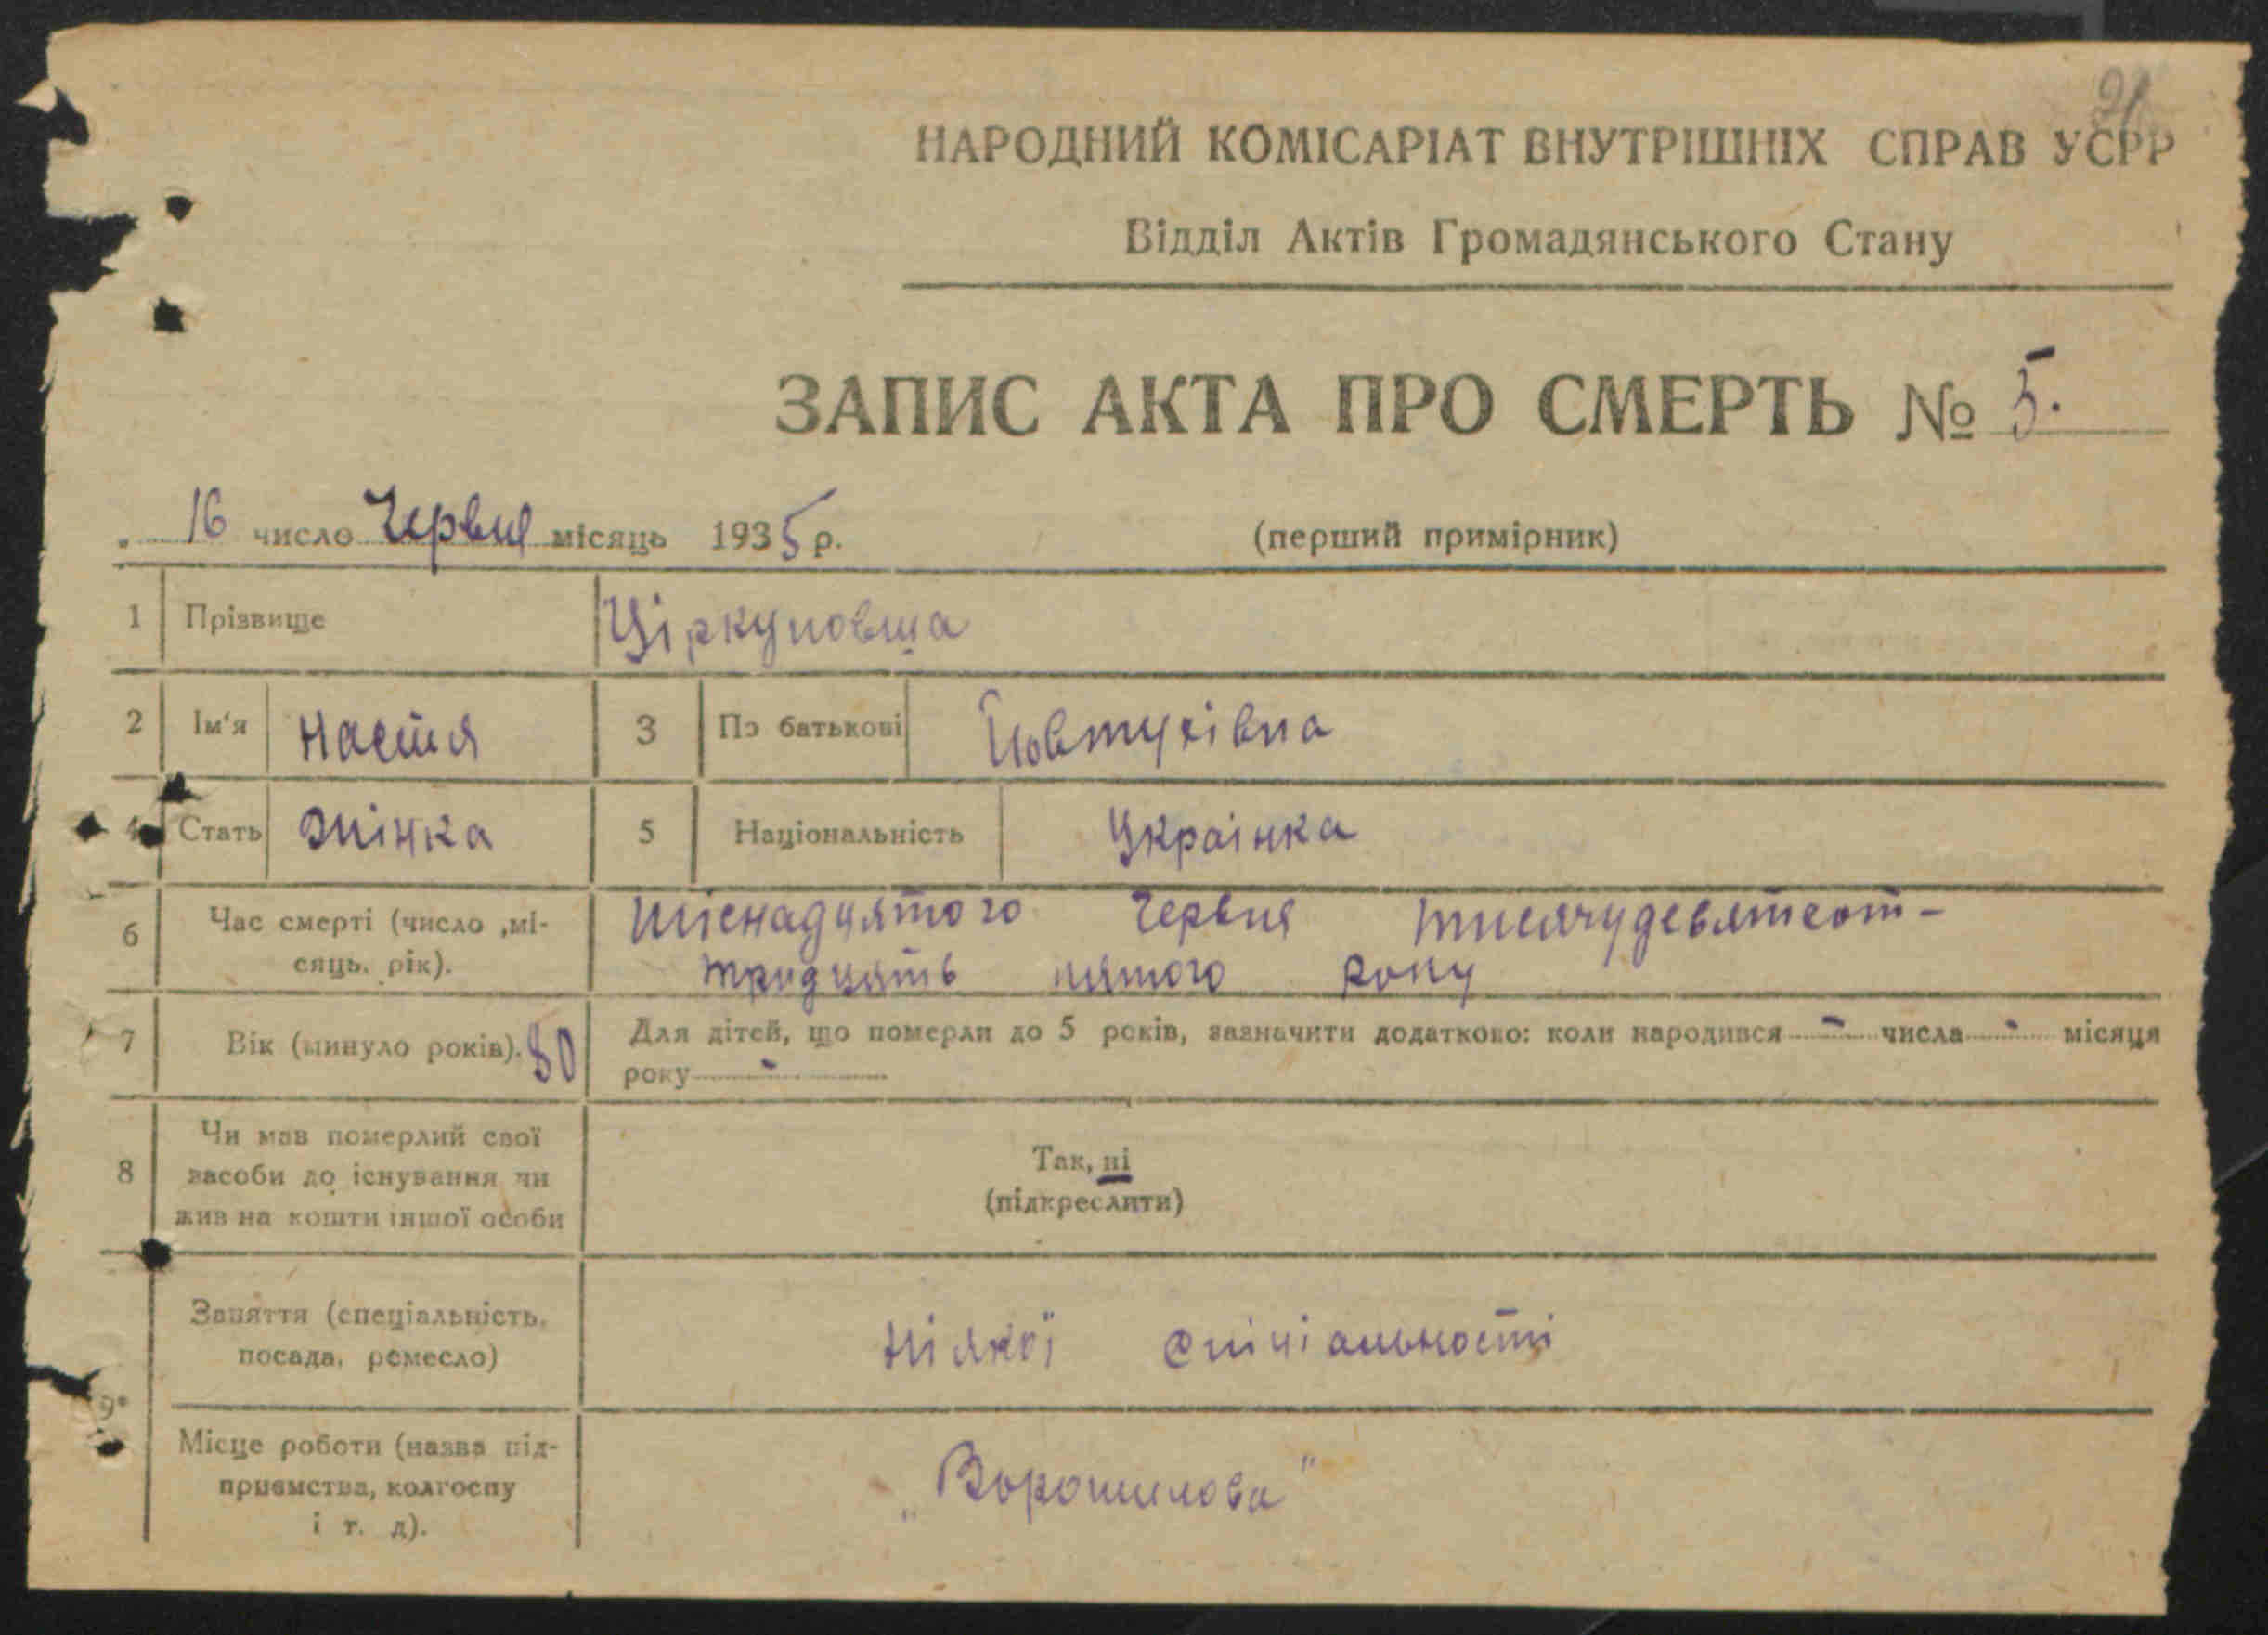 91
НАРОДНИЙ КОМІСАРІАТ ВНУТРІШНІХ СПРАВ УСРР
Відділ Актів Громадянського Стану
ЗАПИС АКТА ПРО СМЕРТЬ № 5.
16 число Червня місяць 1935 р.
(перший примірник)
1 Прізвище
2 Ім'я Настя 3 По батькові Йовтухівна
4 Стать Жінка 5 Національність Українка
6 Час смерті (число ,мі- Шіснадцятого Червня тисячудевятсот-
сяць. рік). тридцять пятого року
7 Вік (минуло років). 80 Для дітей, що померли до 5 років, зазначити додатково: коли народився - числа - місяця
року -
8 Чи мав померлий свої
засоби до існування чи
жив на кошти іншої особи
Так, ні
(підкреслити)
9 Заняття (спеціальність,
посада, ремесло)
Ніякої спіціальності
Місце роботи (назва під-
приємства, колгоспу
і т. д).
„Ворошилова"